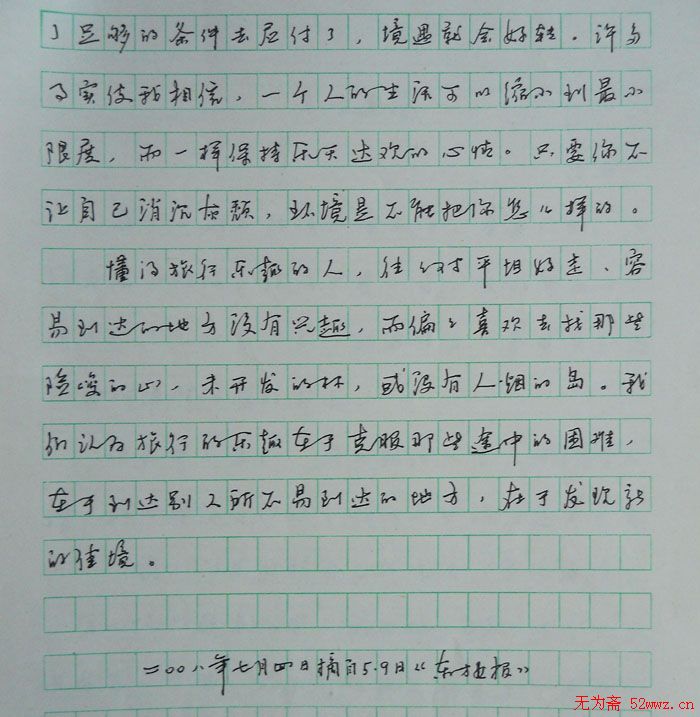 了足够的条件去应付了，境遇就会好转。许多
事实使我相信，一个人的生活可以缩小到最小
限度，而一样保持乐天达观的心情。只要你不
让自己消沉颓，环境是不能把你怎么样的。
懂得旅行乐趣的人，往往对平坦好走、容
易到达的地方没有兴趣，而偏偏喜欢去找那些
险峻的山，未开发的林，或没有人烟的岛。我
们认为旅行的乐趣在于克服那些途中的困难，
在于到达别人所不易到达的地方，在于发现新
的佳境。
二〇〇八年七月四日摘自5.9日《东报》
无为斋 52wwz.cn